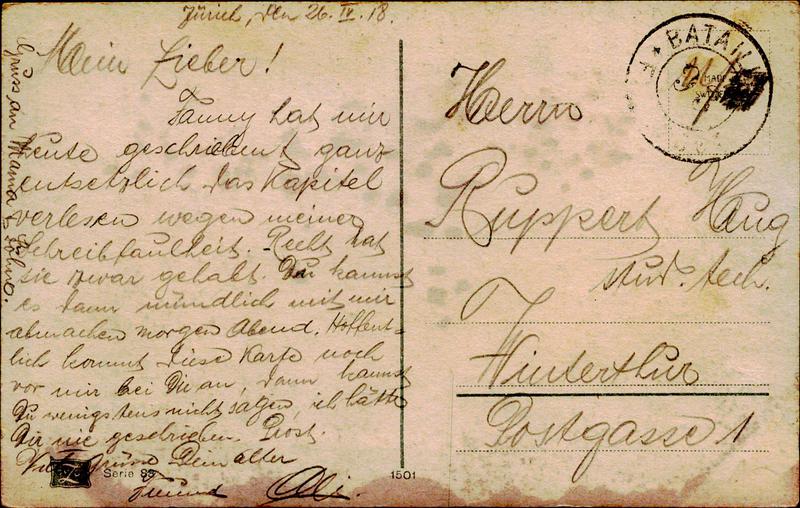 Zürich, den 26. IV. 18.
Mein Lieber!
Fanny hat mir
heute geschrieben & ganz
entsetzlich das Kapitel
verlesen wegen meiner
Schreibfaulheit. Recht hat
sie zwar gehabt. Du kannst
es dann mündlich mit mir
abmachen morgen Abend. Hoffent-
lich kommt diese Karte noch
vor mir bei Dir an, dann kannst
Du wenigstens nicht sagen, ich hätte
Dir nie geschrieben. Prost.
Viele Grüsse Dein alter
Freund
Gruss an Mama &
Serie 88
1501
BATAILL
MADE
Herrn
Ruppert Haug
stud. tech.
Winterthur
Postgasse 1